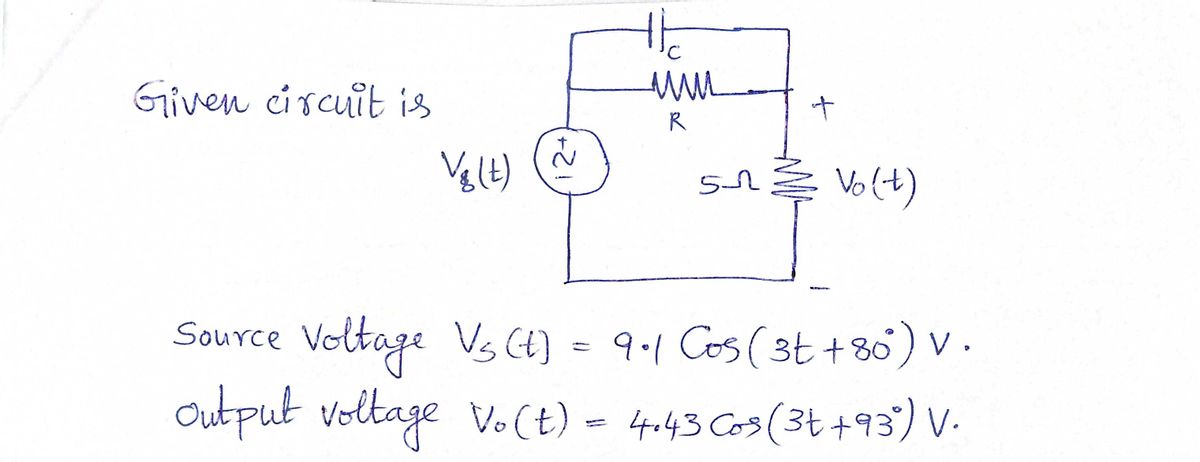 C
Given circuit is
R
+
Vs(t)
+
~
-
5Ω
Vo(t)
-
Source Voltage Vs(t) = 9.1 Cos(3t+80°) V.
Output voltage Vo(t) = 4.43 Cos(3t+93°) V.